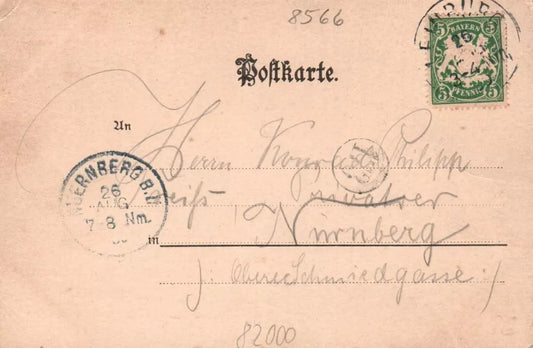 8566
BAYERN
5 5
PFENNIG
26
3-4
Postkarte.
An
Herrn Konrad Philipp
Privatier
in Nürnberg
/: Obere Schmiedgasse :/
NUERNBERG B.P.
26
AUG
7-8 Nm.
82000